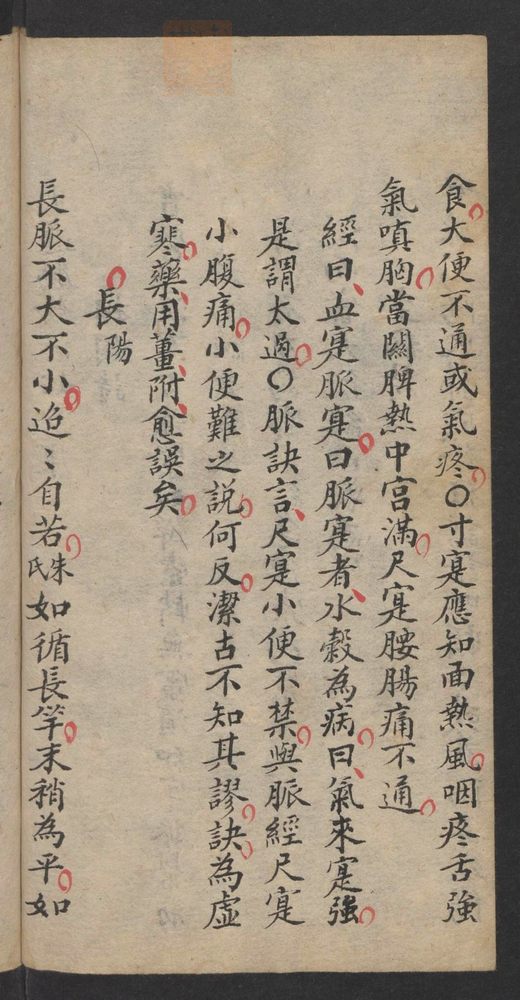 食大便不通或氣疼〇寸寔應知面熱風咽疼舌強
氣嗔胸當關脾熱中宮滿尺寔腰腸痛不通
經曰血寔脈寔曰脈寔者水穀為病曰氣來寔強
是謂太過〇脈訣言尺寔小便不禁與脈經尺寔
小腹痛小便難之說何反潔古不知其謬訣為虛
寒藥用薑附愈誤矣
長陽
長脈不大不小迢〻自若朱氏如循長竿末稍為平如